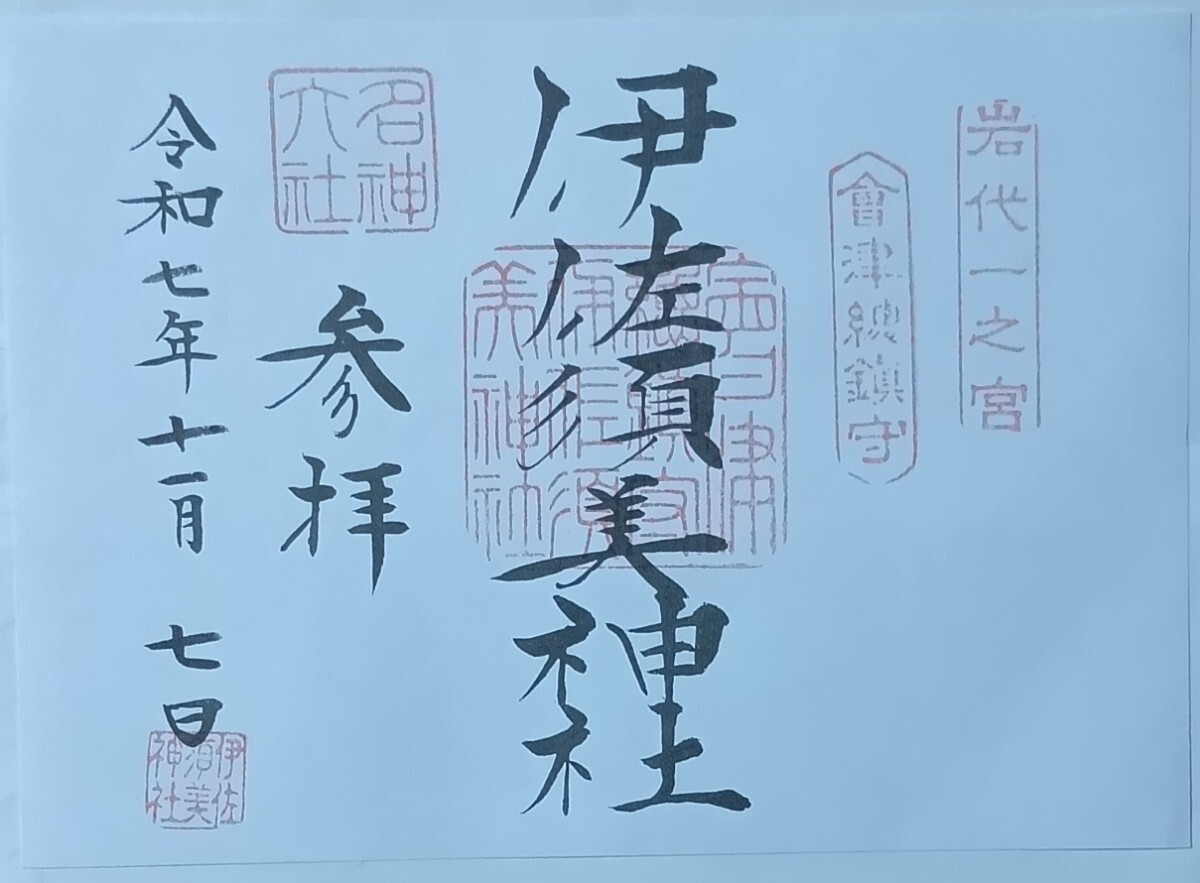 岩代一之宮
會津總鎮守
伊佐須美神社
總鎮守
伊佐須
美神社
名神
大社
参拝
令和七年十一月 七日
伊佐
須美
神社